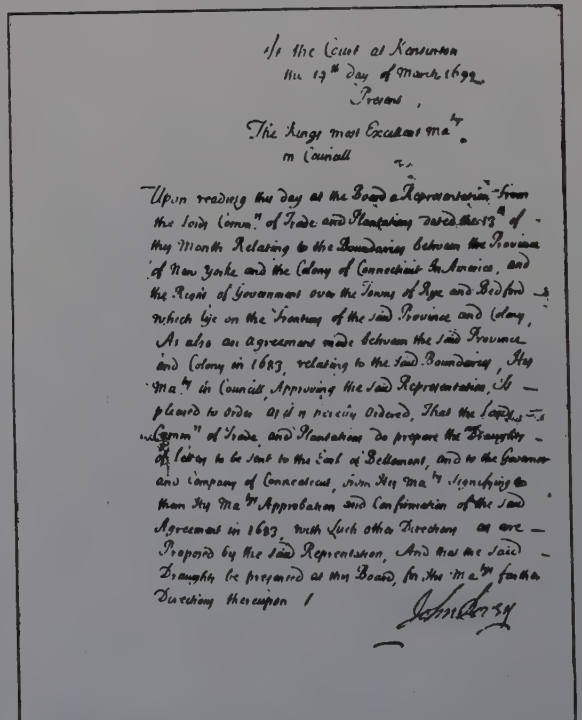 At the Court at Kensington
the 17th day of March 1699
Present,
The Kings most Excellent Maty.
in Councill
Upon reading this day at the Board a Representation from
the Lords Commrs of Trade and Plantations dated the 13th of
this Month Relating to the Boundaries between the Province
of New Yorke and the Colony of Connecticut In America, and
the Right of Government over the Towns of Rye and Bedford
which lye on the Frontiers of the said Province and Colony,
As also an Agreement made between the said Province
and Colony in 1683, relating to the said Boundaries, His
Maty. in Councill, Approving the said Representation, is
pleased to order as it is hereby Ordered, That the Lords
Commrs of Trade, and Plantations do prepare the Draughts
of Letters to be sent to the Earl of Bellomont, and to the Governor
and Company of Connecticut, from His Maty signifying to
them His Matys Approbation and Confirmation of the said
Agreement in 1683, with such other Directions as are
Proposed by the said Representation, And that the said
Draughts be presented at this Board, for His Matys further
Directions thereupon /